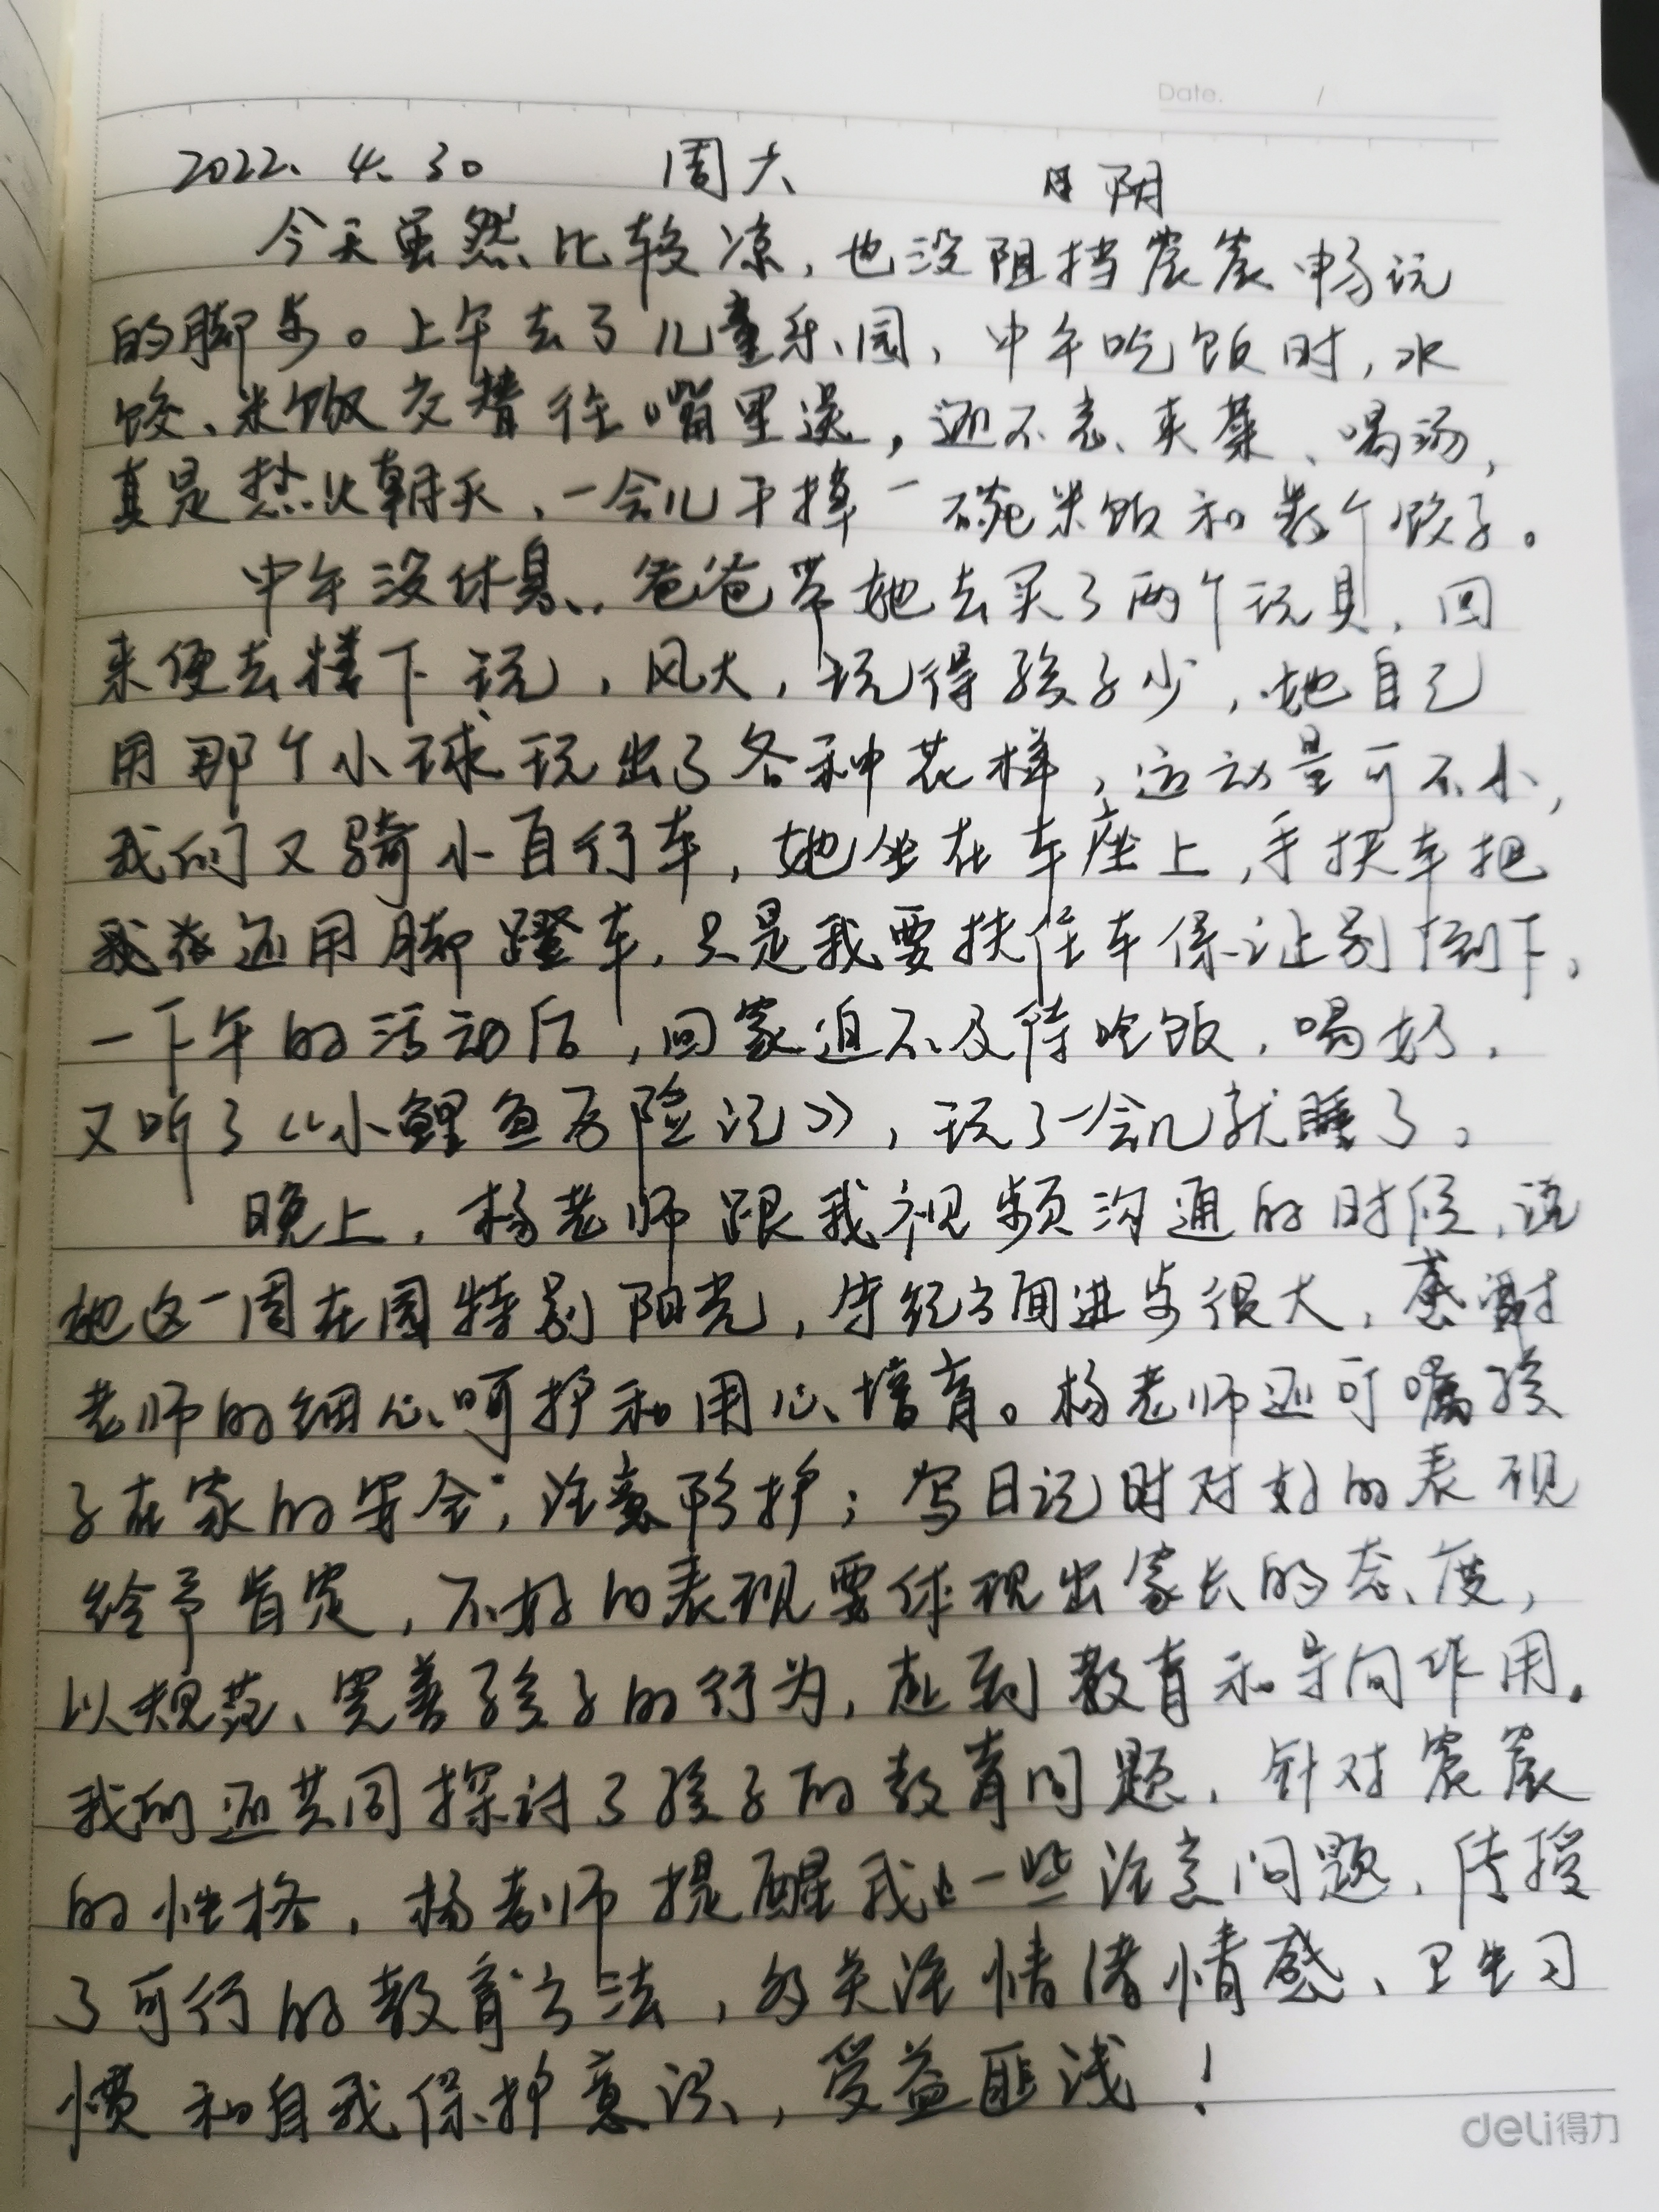 Date. /
2022. 4. 30 周六 阴
今天虽然比较凉，也没阻挡宸宸畅玩
的脚步。上午去了儿童乐园，中午吃饭时，水
饺、米饭交替往嘴里送，还不忘夹菜、喝汤，
真是热火朝天，一会儿干掉一碗米饭和数个饺子。
中午没休息，爸爸带她去买了两个玩具，回
来便去楼下玩，风大，玩得孩子少，她自己
用那个小球玩出了各种花样，运动量可不小，
我们又骑小自行车，她坐在车座上，手扶车把
还用脚蹬车，只是我要扶住车保证别倒下，
一下午的活动后，回家迫不及待吃饭，喝奶，
又听了《小鲤鱼历险记》，玩了一会儿就睡了。
晚上，杨老师跟我视频沟通的时候，说
她这一周在园特别阳光，守纪方面进步很大，感谢
老师的细心呵护和用心培育。杨老师还叮嘱孩
子在家的安全，注意防护；写日记时对好的表现
给予肯定，不好的表现要体现出家长的态度，
以规范、完善孩子的行为，起到教育和导向作用。
我们还共同探讨了孩子的教育问题，针对宸宸
的性格，杨老师提醒我一些注意问题，传授
了可行的教育方法，多关注情绪情感、卫生习
惯和自我保护意识，受益匪浅！
deli得力